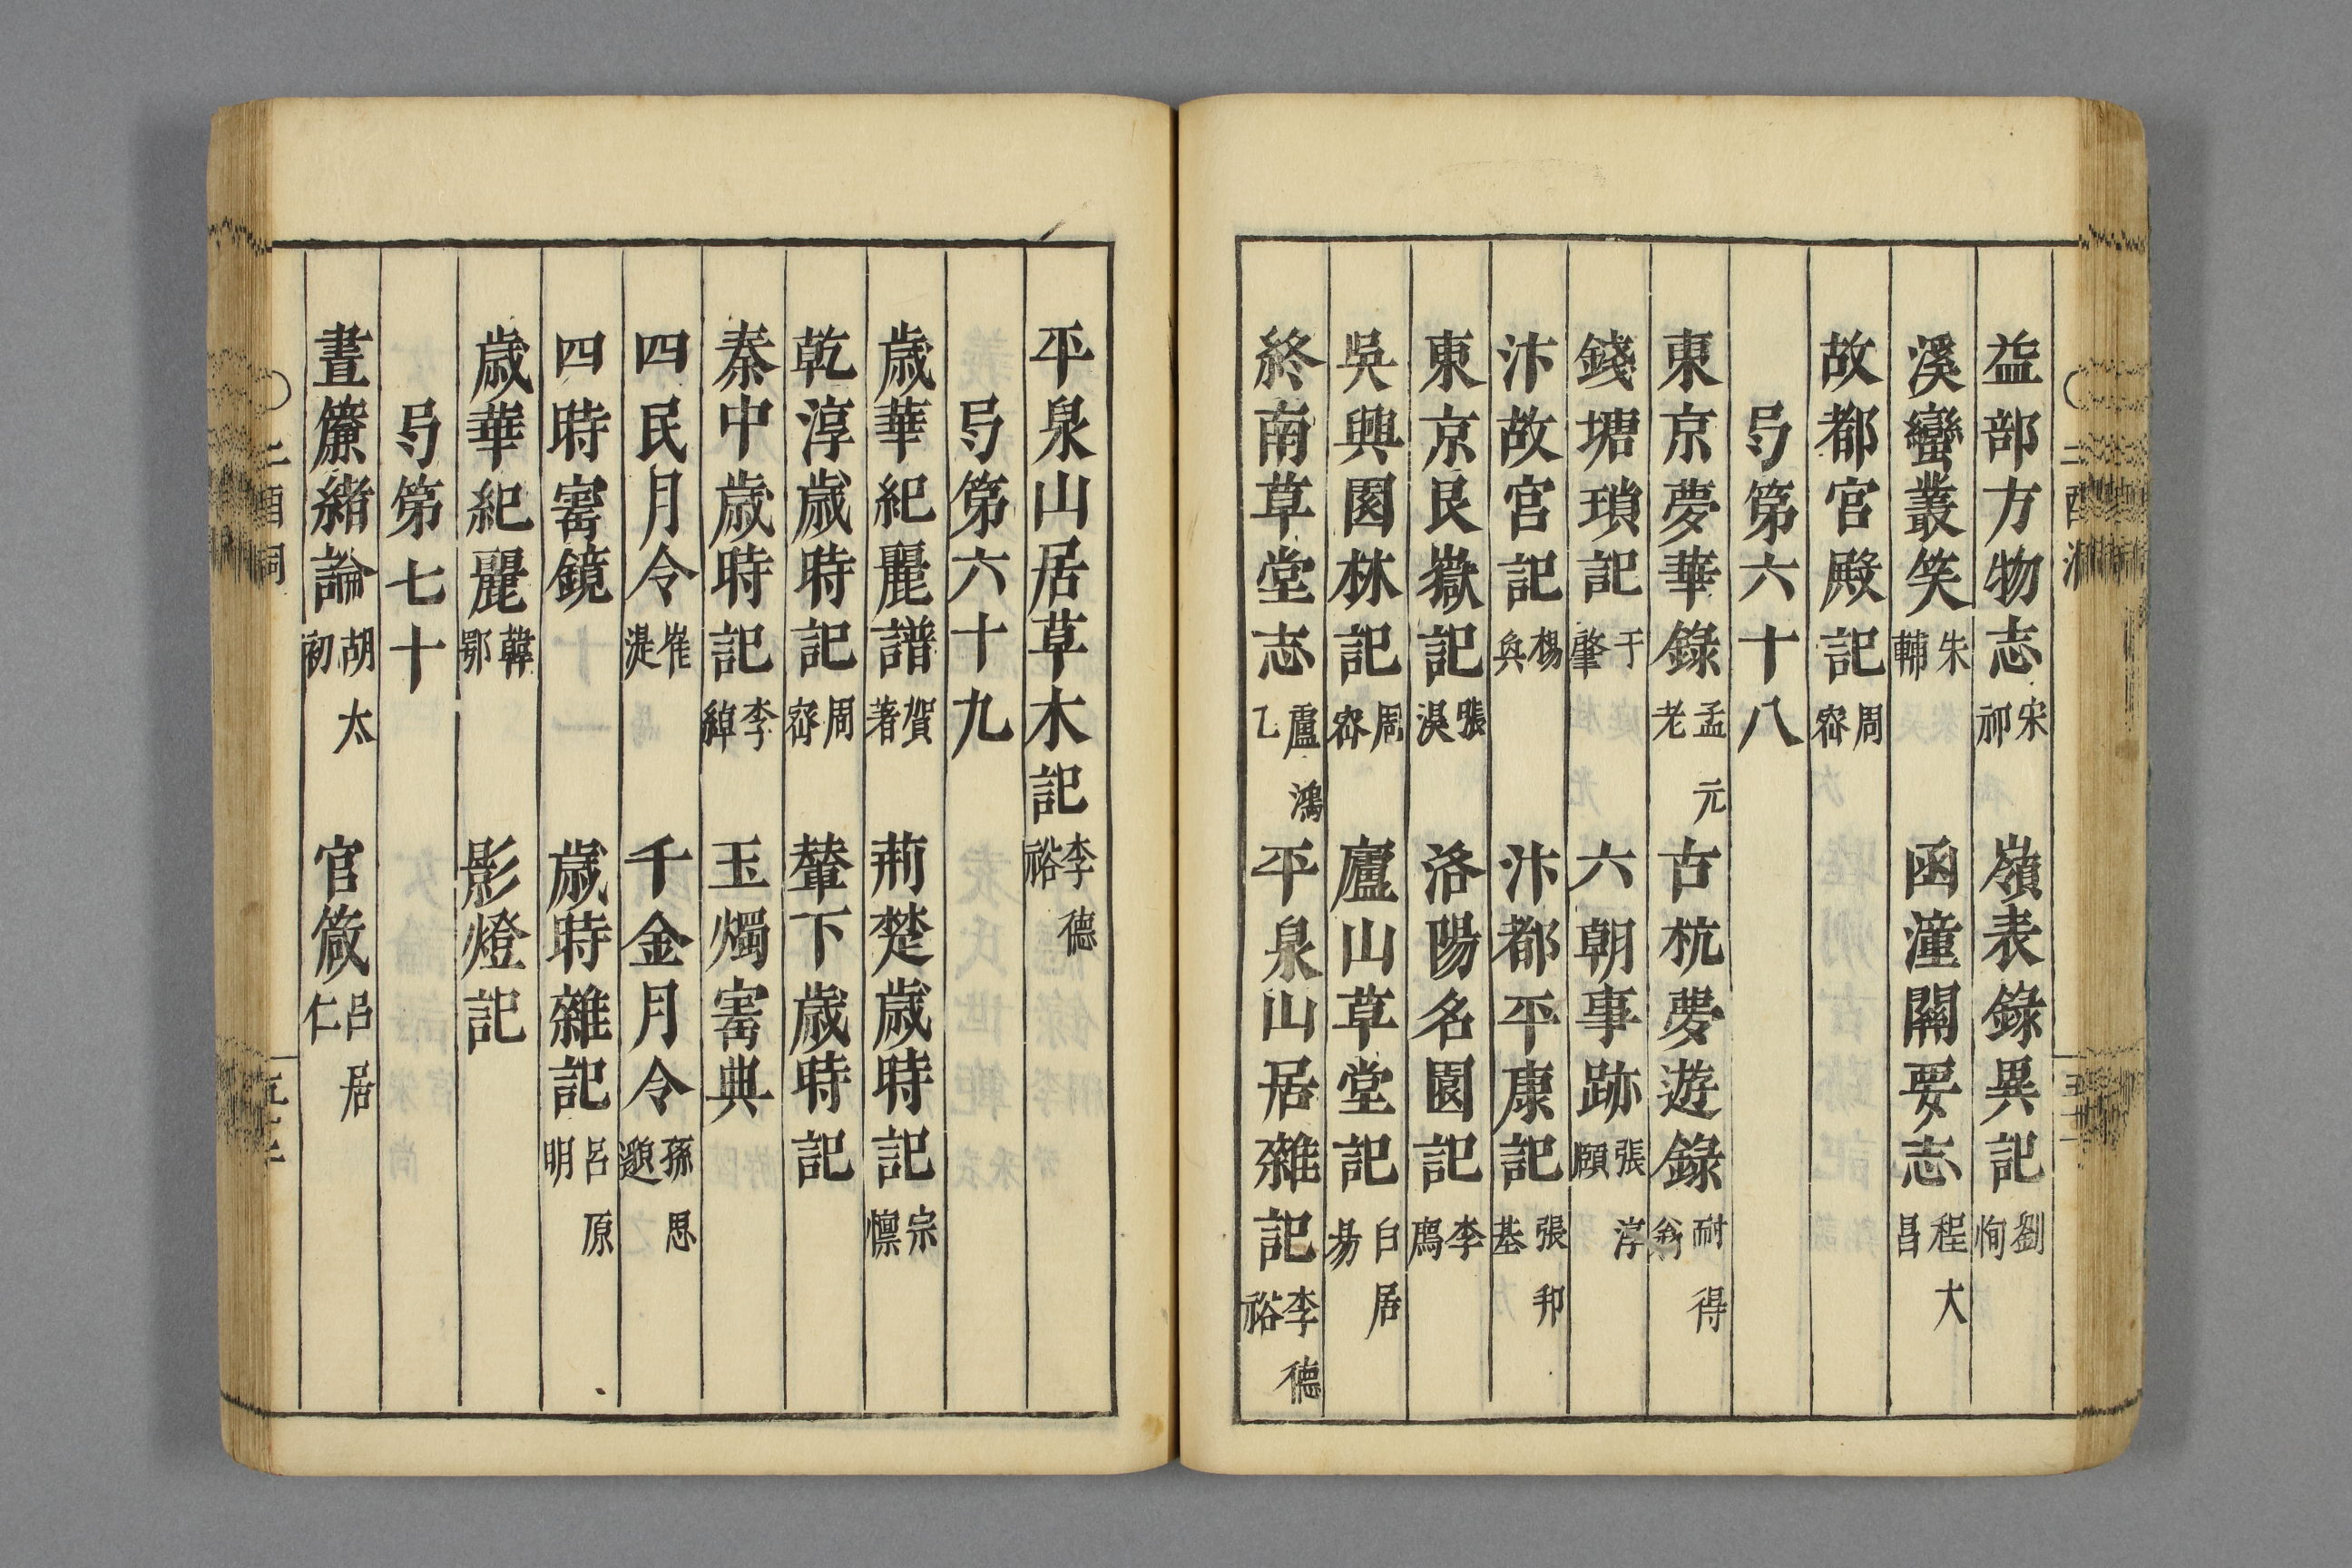 益部方物志 宋祁 嶺表錄異記 劉恂
溪蠻叢笑 朱輔 函潼關要志 程大昌
故都宮殿記 周密
弓第六十八
東京夢華錄 孟元老 古杭夢遊錄 耐得翁
錢塘瑣記 于肇 六朝事跡 張敦頤
汴故宮記 楊奐 汴都平康記 張邦基
東京艮嶽記 張淏 洛陽名園記 李廌
吳興園林記 周密 廬山草堂記 白居易
終南草堂志 盧鴻乙 平泉山居雜記 李德裕
平泉山居草木記 李德裕
弓第六十九
歲華紀麗譜 費著 荊楚歲時記 宗懍
乾淳歲時記 周密 輦下歲時記
秦中歲時記 李綽 玉燭寶典
四民月令 崔湜 千金月令 孫思邈
四時寶鏡 歲時雜記 呂原明
歲華紀麗 韓鄂 影燈記
弓第七十
晝簾緒論 胡太初 官箴 呂居仁